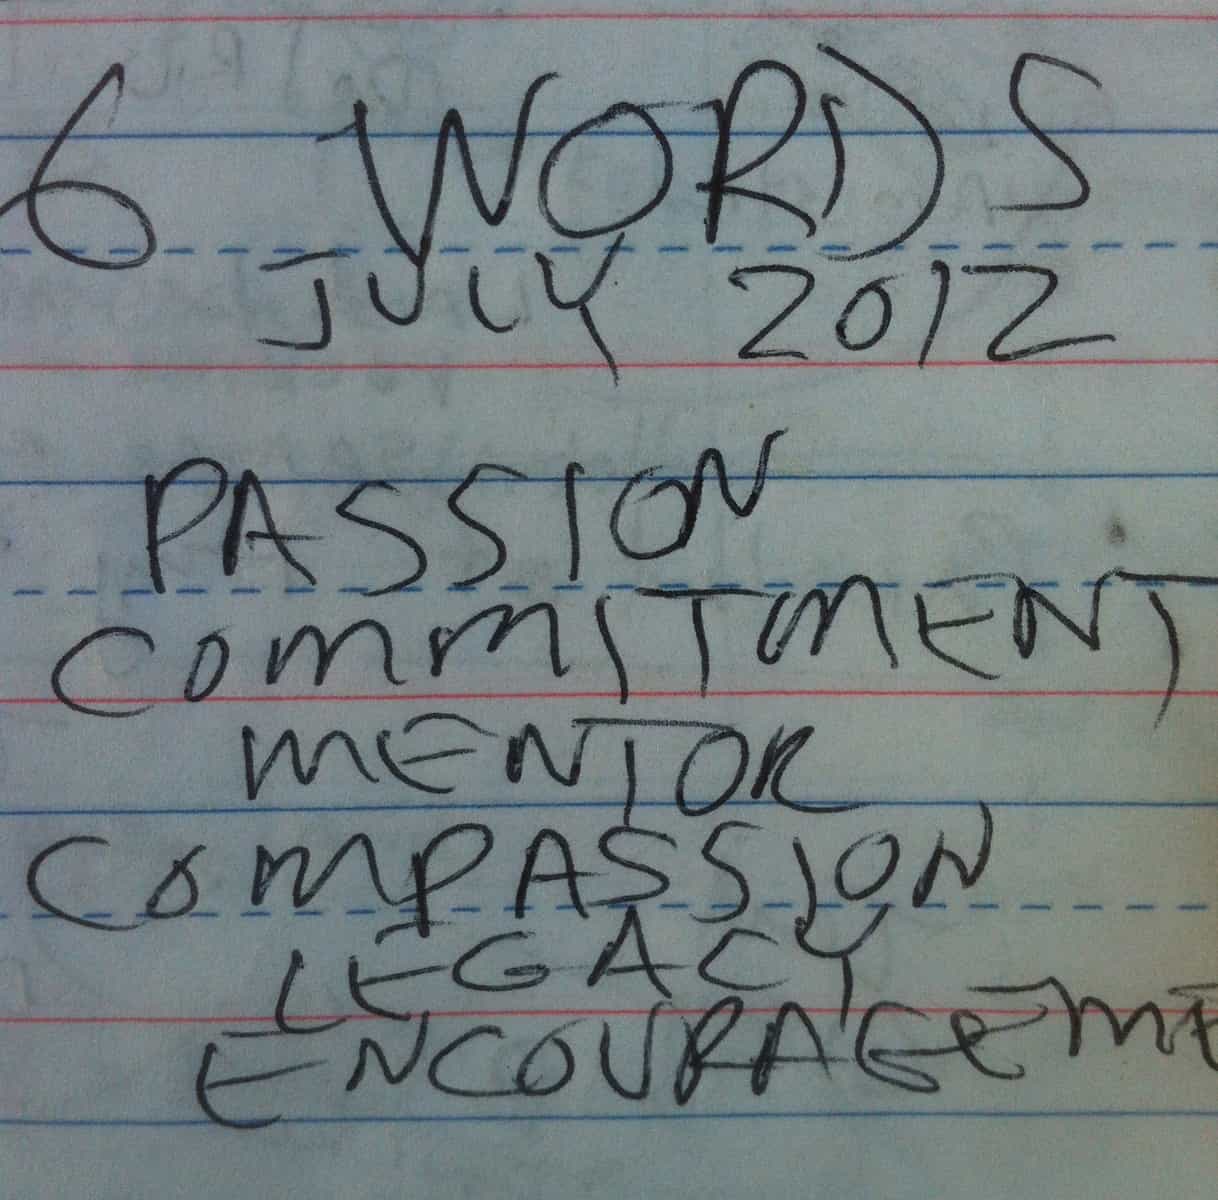 6 WORDS
JULY 2012
PASSION
COMMITMENT
MENTOR
COMPASSION
LEGACY
ENCOURAGEME